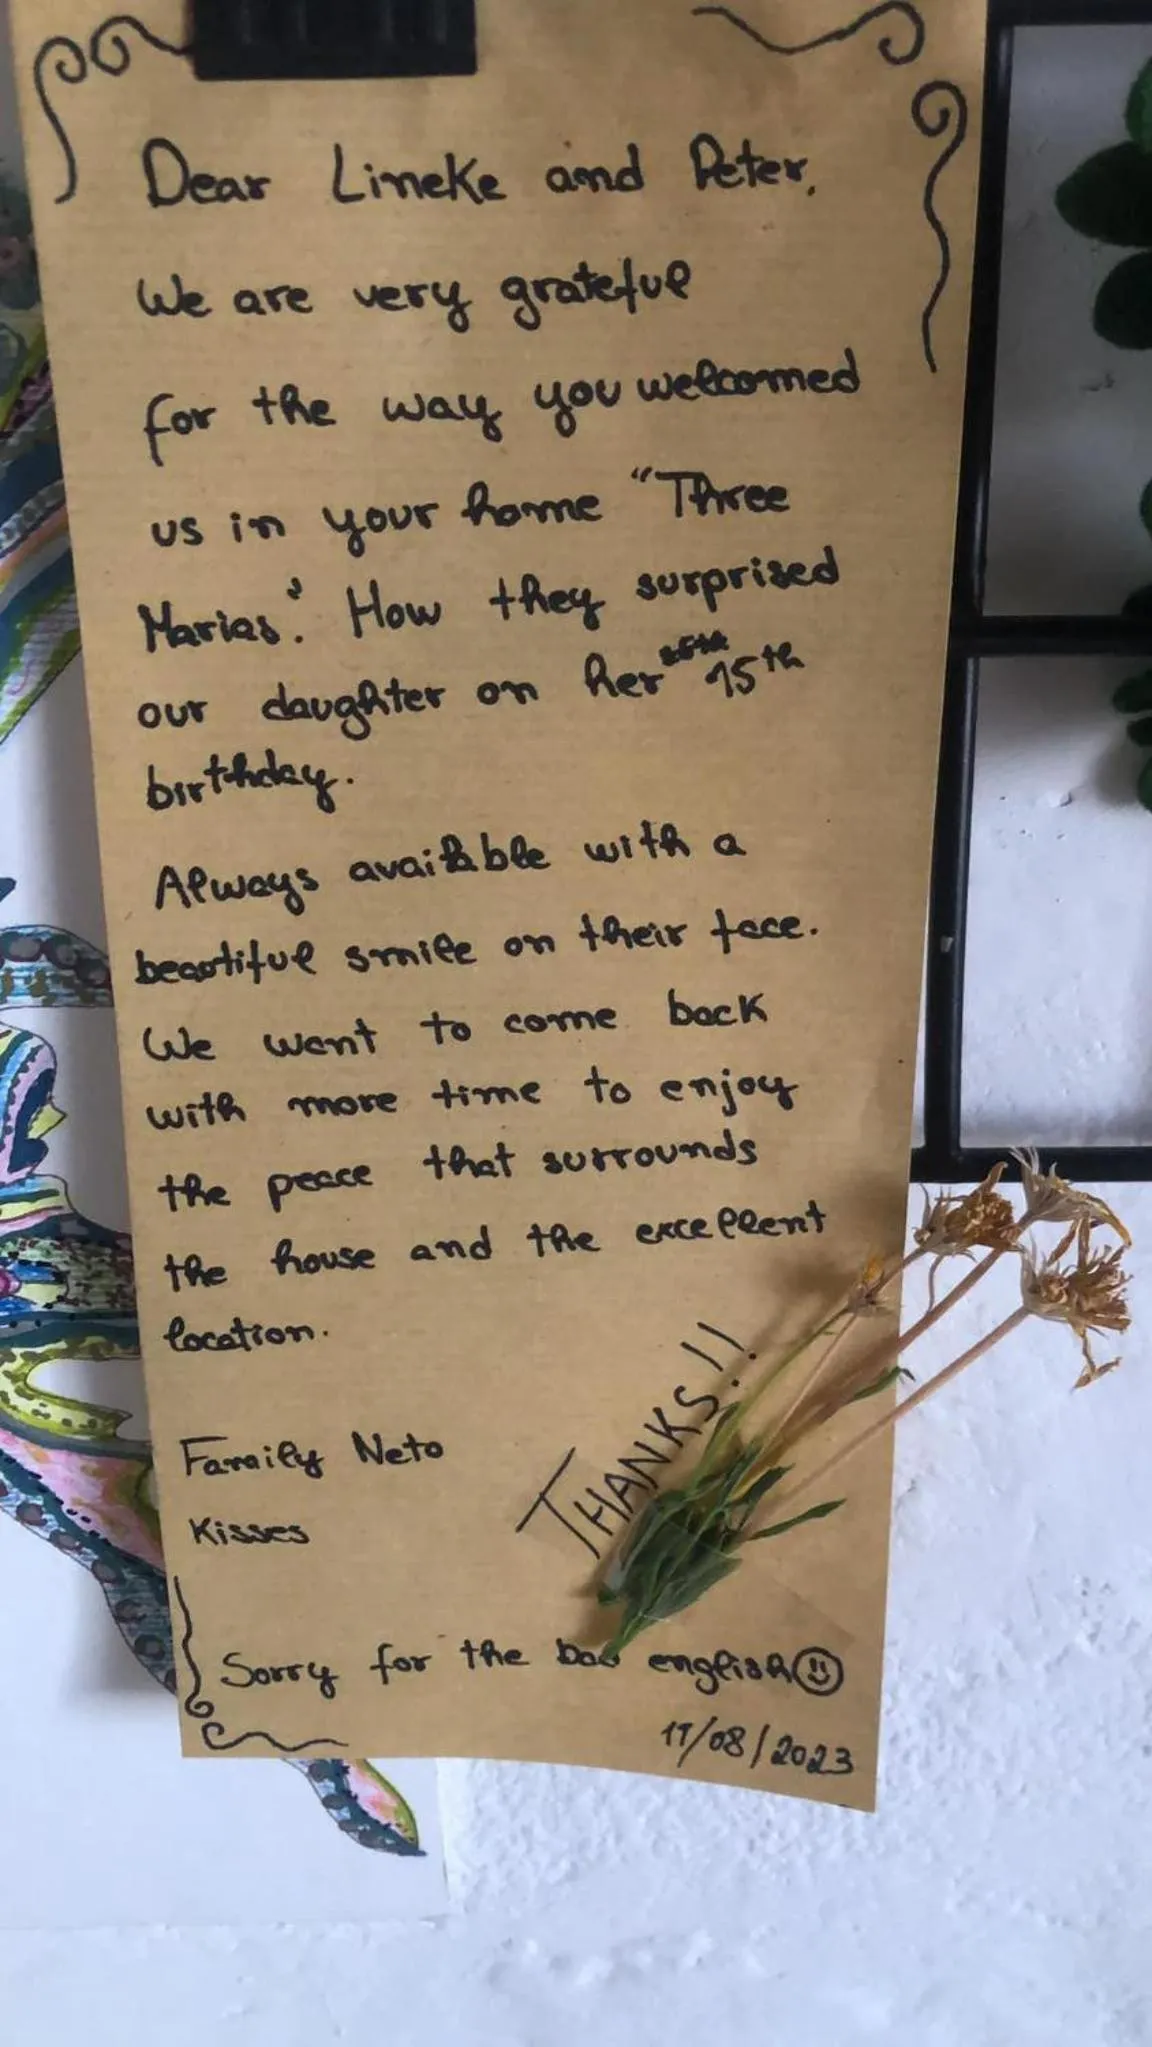 Dear Lineke and Peter,
We are very grateful
for the way you welcomed
us in your home "Three
Marias". How they surprised
our daughter on her 15th
birthday.
Always available with a
beautiful smile on their face.
We want to come back
with more time to enjoy
the peace that surrounds
the house and the excellent
location.
Family Neto
Kisses
THANKS!!
Sorry for the bad english
/08/2023